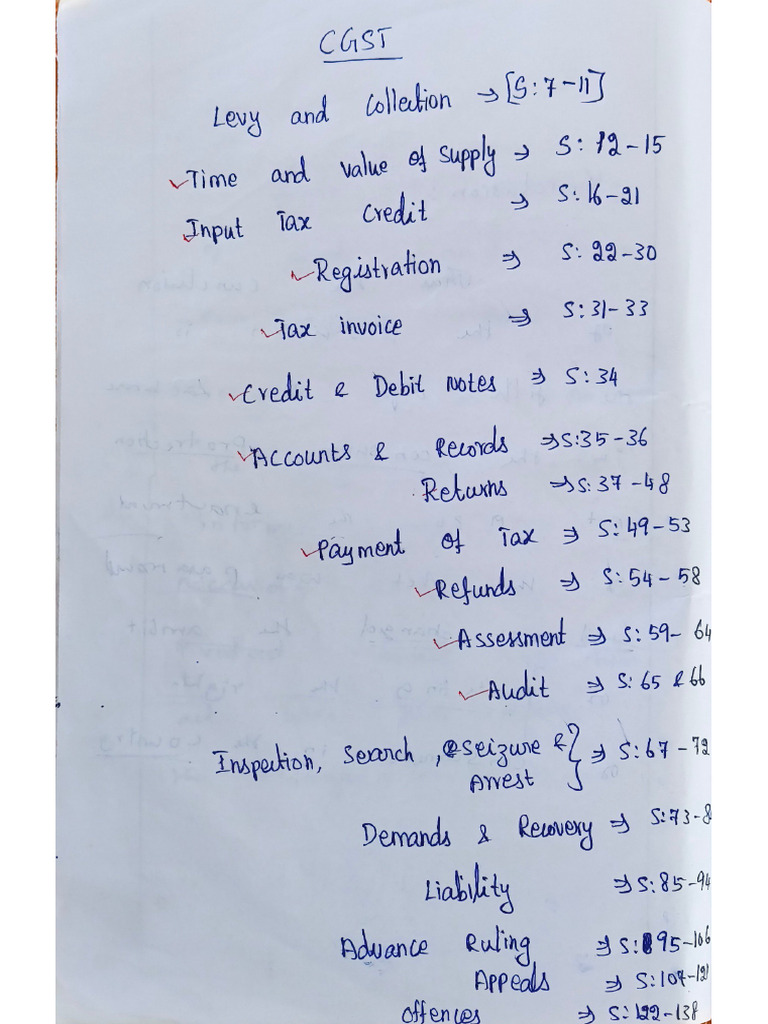 CGST
Levy and Collection → [S: 7-11]
Time and Value of Supply ⇒ S: 12-15
Input Tax Credit ⇒ S: 16-21
Registration ⇒ S: 22-30
Tax invoice ⇒ S: 31-33
Credit & Debit Notes ⇒ S: 34
Accounts & Records ⇒ S: 35-36
Returns ⇒ S: 37-48
Payment of Tax ⇒ S: 49-53
Refunds ⇒ S: 54-58
Assessment ⇒ S: 59-64
Audit ⇒ S: 65 & 66
Inspection, Search, Seizure & } ⇒ S: 67-72
Arrest
Demands & Recovery ⇒ S: 73-8
Liability ⇒ S: 85-94
Advance Ruling ⇒ S: 95-106
Appeals ⇒ S: 107-121
Offences ⇒ S: 122-138